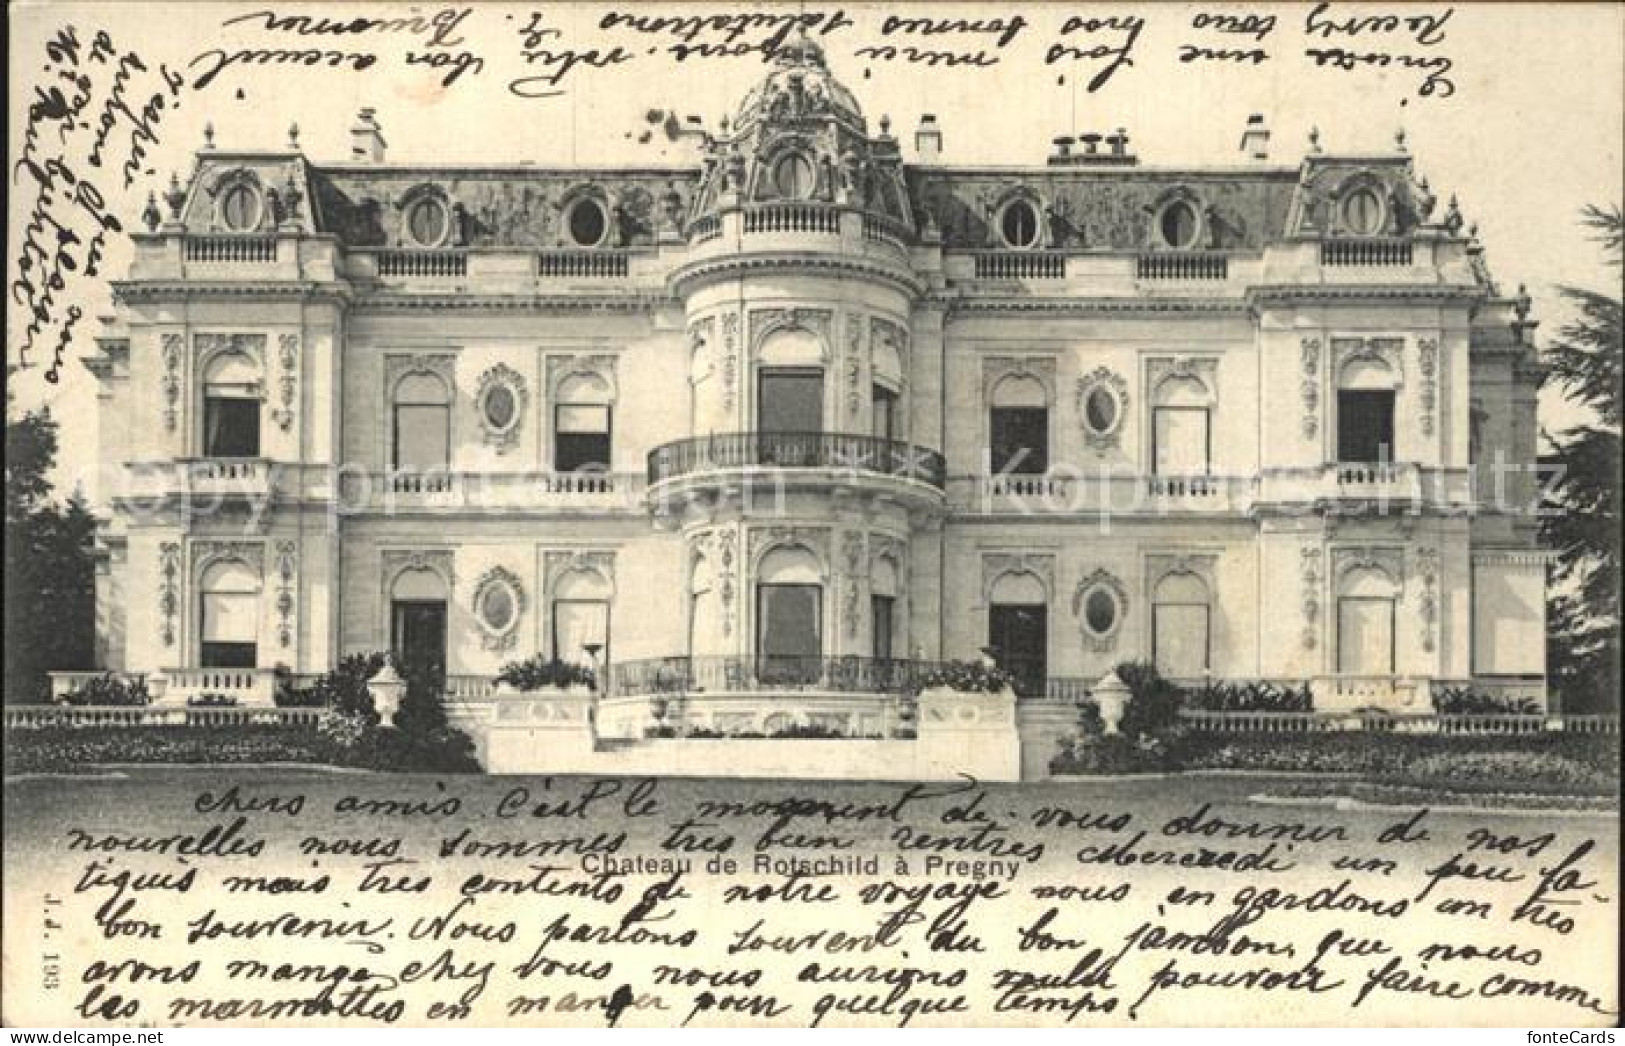 chers amis. C'est le moment de vous donner de nos
nouvelles nous sommes tres bien rentres Mercredi un peu fa-
Chateau de Rotschild à Pregny
tigués mais tres contents de notre voyage nous en gardons un tres
bon souvenir. Nous parlons souvent du bon jambon, que nous
avons mangé chez vous nous aurions voulu pouvoir faire comme
les marmottes en manger pour quelque temps.
J.J. 193
Encore une fois merci pour votre bon accueil
Recevez tous nos bonnes salutations
J'espère
nous
plaisir
de voir bientôt
M. Paul
copyright * Kopierschutz
fonteCards